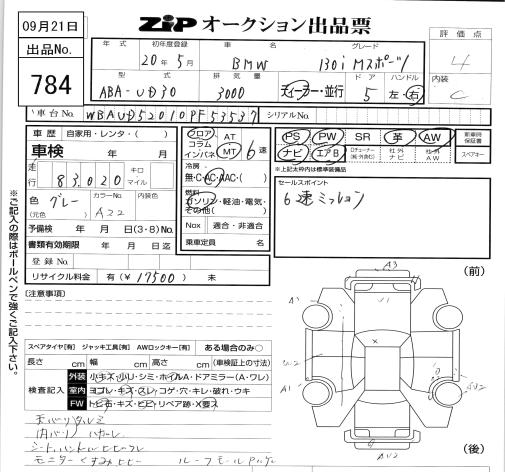 09月21日
出品No.
784
ZIP オークション出品票
評価点
4
内装
C
年式 初年度登録 車名 グレード
20年5月 BMW 130i Mスポーツ
型式 排気量 ドア ハンドル
ABA-UD30 3000 ディーラー・並行 5 左・右
車台No. WBAUD52010PF53537 シリアルNo.
車歴 自家用・レンタ・( )
車検 年 月 日
走行 83,020 キロ マイル
色 グレー カラーNo. A22 内装色
(元色)
予備検 年 月 日(3・8)No.
書類有効期限 年 月 日迄
登録No.
リサイクル料金 有(¥17500) 未
フロア AT
コラム
インパネ MT 6速
冷房
無・C・AC・AAC・( )
燃料
ガソリン・軽油・電気・
その他( )
Nox 適合・非適合
乗車定員 名
PS PW SR 革 AW 新車時保証書
ナビ エアB 社外ナビ 社外AW スペアキー
*上記太枠内は標準装備品
セールスポイント
6速ミッション
※ご記入の際はボールペンで強くご記入下さい。
[注意事項]
スペアタイヤ[有] ジャッキ工具[有] AWロックキー[有] ある場合のみ○
長さ cm 幅 cm 高さ cm (車検証上の寸法)
検査記入
外装 小キズ・小リ・シミ・ホイルA・ドアミラー(A・ワレ)
室内 ヨゴレ・キズ・スレ・コゲ・穴・キレ・破れ・ウキ
FW トビ石・キズ・ヒビ・リペア跡・X要ス
天バリタルミ
内バリ ハガレ
(前)
A3
A1
A1
W2
X
UV2
A
UV2
(後)